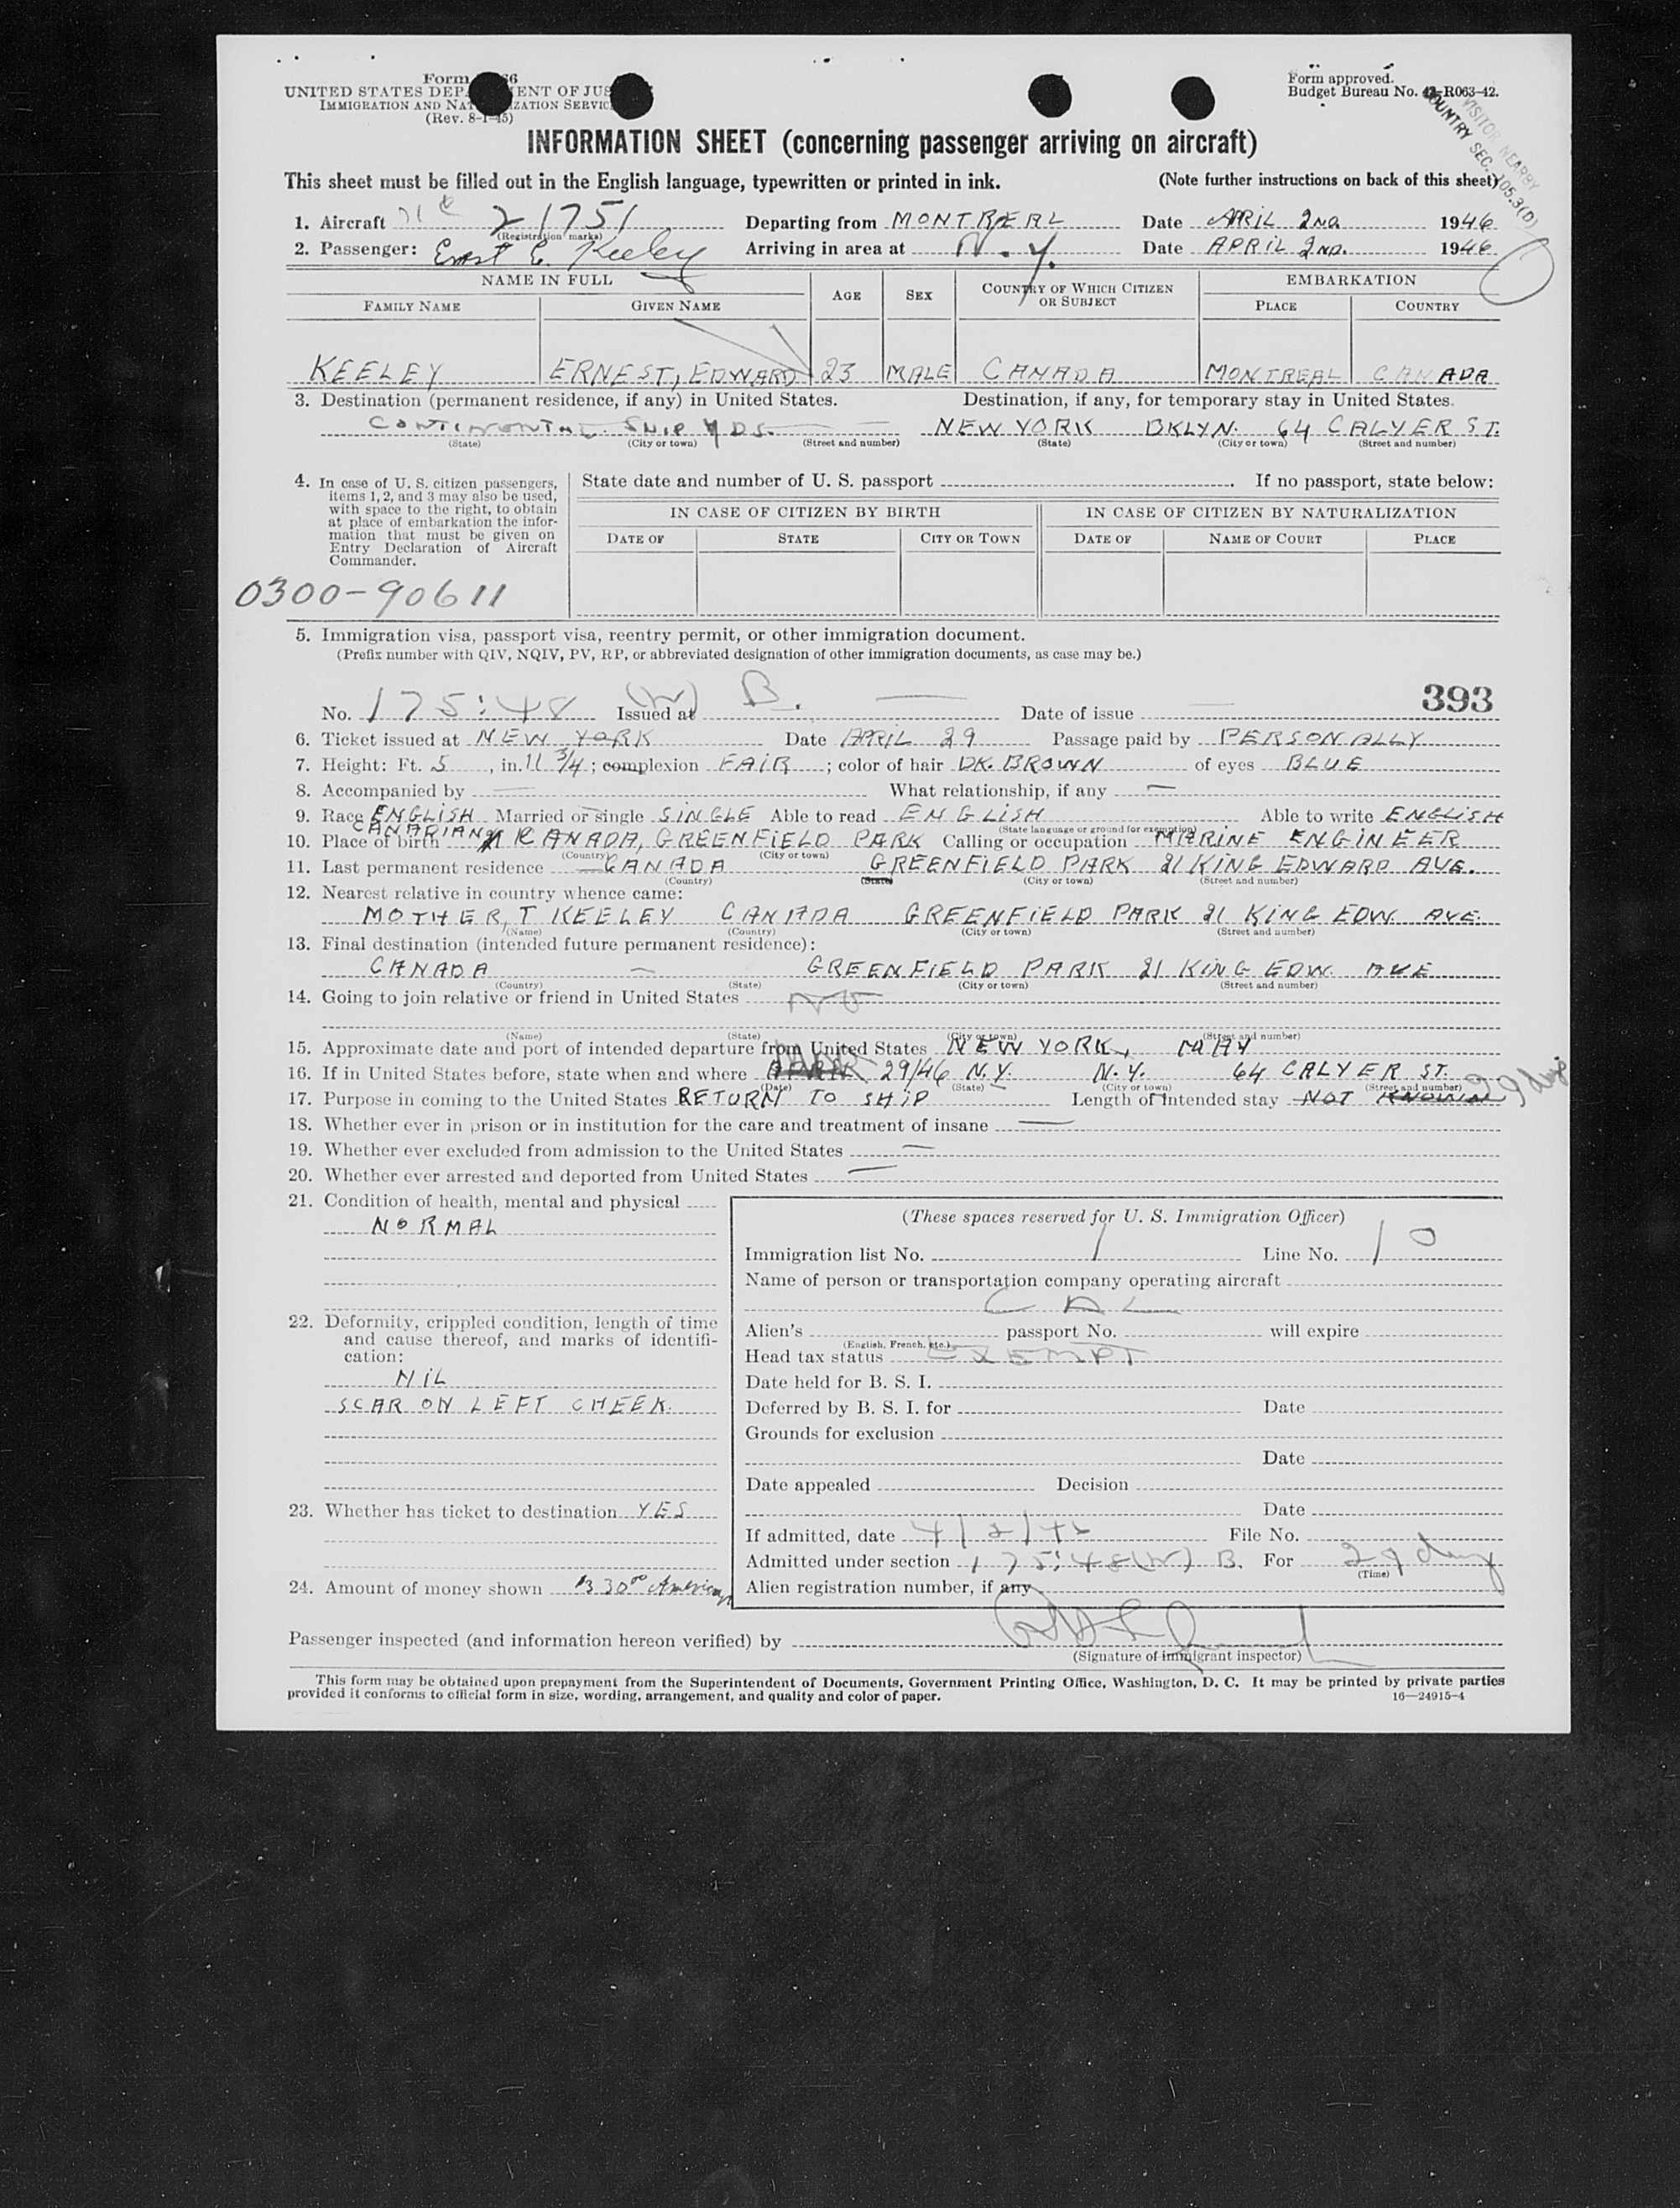 Form 66
UNITED STATES DEP ENT OF JUS
IMMIGRATION AND NAT IZATION SERVIC
(Rev. 8-1-45)
Form approved.
Budget Bureau No. 43-R063-42.
VISITOR NEARBY
COUNTRY SEC. 105.3(D)
INFORMATION SHEET (concerning passenger arriving on aircraft)
This sheet must be filled out in the English language, typewritten or printed in ink. (Note further instructions on back of this sheet)
1. Aircraft 21751 Departing from MONTREAL Date APRIL 2ND. 1946
(Registration marks)
2. Passenger: Ernest E. Keeley Arriving in area at N.Y. Date APRIL 2ND. 1946
NAME IN FULL AGE SEX COUNTRY OF WHICH CITIZEN OR SUBJECT EMBARKATION
FAMILY NAME GIVEN NAME PLACE COUNTRY
KEELEY ERNEST, EDWARD 23 MALE CANADA MONTREAL CANADA
3. Destination (permanent residence, if any) in United States. Destination, if any, for temporary stay in United States.
CONTINONTAL SHIP YDS. NEW YORK BKLYN. 64 CALYER ST.
(State) (City or town) (Street and number) (State) (City or town) (Street and number)
4. In case of U. S. citizen passengers,
items 1, 2, and 3 may also be used,
with space to the right, to obtain
at place of embarkation the infor-
mation that must be given on
Entry Declaration of Aircraft
Commander.
State date and number of U. S. passport If no passport, state below:
IN CASE OF CITIZEN BY BIRTH IN CASE OF CITIZEN BY NATURALIZATION
DATE OF STATE CITY OR TOWN DATE OF NAME OF COURT PLACE
0300-90611
5. Immigration visa, passport visa, reentry permit, or other immigration document.
(Prefix number with QIV, NQIV, PV, RP, or abbreviated designation of other immigration documents, as case may be.)
393
No. 175:48 (W) B. Issued at Date of issue
6. Ticket issued at NEW YORK Date APRIL 29 Passage paid by PERSONALLY
7. Height: Ft. 5, in. 11 3/4; complexion FAIR; color of hair DK. BROWN of eyes BLUE
8. Accompanied by — What relationship, if any —
9. Race ENGLISH Married or single SINGLE Able to read ENGLISH Able to write ENGLISH
CANADIAN (State language or ground for exemption)
10. Place of birth CANADA, GREENFIELD PARK Calling or occupation MARINE ENGINEER
(Country) (City or town)
11. Last permanent residence CANADA GREENFIELD PARK 21 KING EDWARD AVE.
(Country) (State) (City or town) (Street and number)
12. Nearest relative in country whence came:
MOTHER, T KEELEY CANADA GREENFIELD PARK 21 KING EDW. AVE.
(Name) (Country) (City or town) (Street and number)
13. Final destination (intended future permanent residence):
CANADA — GREENFIELD PARK 21 KING EDW. AVE
(Country) (State) (City or town) (Street and number)
14. Going to join relative or friend in United States NO
(Name) (State) (City or town) (Street and number)
15. Approximate date and port of intended departure from United States NEW YORK, MAY
16. If in United States before, state when and where 29/46 N.Y. N.Y. 64 CALYER ST.
(Date) (State) (City or town) (Street and number)
17. Purpose in coming to the United States RETURN TO SHIP Length of intended stay NOT KNOWN 29 days
18. Whether ever in prison or in institution for the care and treatment of insane —
19. Whether ever excluded from admission to the United States —
20. Whether ever arrested and deported from United States —
21. Condition of health, mental and physical
NORMAL
22. Deformity, crippled condition, length of time
and cause thereof, and marks of identifi-
cation:
NIL
SCAR ON LEFT CHEEK.
23. Whether has ticket to destination YES
24. Amount of money shown $30.00 American
(These spaces reserved for U. S. Immigration Officer)
Immigration list No. 1 Line No. 10
Name of person or transportation company operating aircraft
CAL
Alien's passport No. will expire
(English, French, etc.)
Head tax status EXEMPT
Date held for B. S. I.
Deferred by B. S. I. for Date
Grounds for exclusion
Date
Date appealed Decision
Date
If admitted, date 4/2/46 File No.
Admitted under section 175:48(W) B. For 29 days
(Time)
Alien registration number, if any
Passenger inspected (and information hereon verified) by
(Signature of immigrant inspector)
This form may be obtained upon prepayment from the Superintendent of Documents, Government Printing Office, Washington, D. C. It may be printed by private parties
provided it conforms to official form in size, wording, arrangement, and quality and color of paper. 16—24915-4